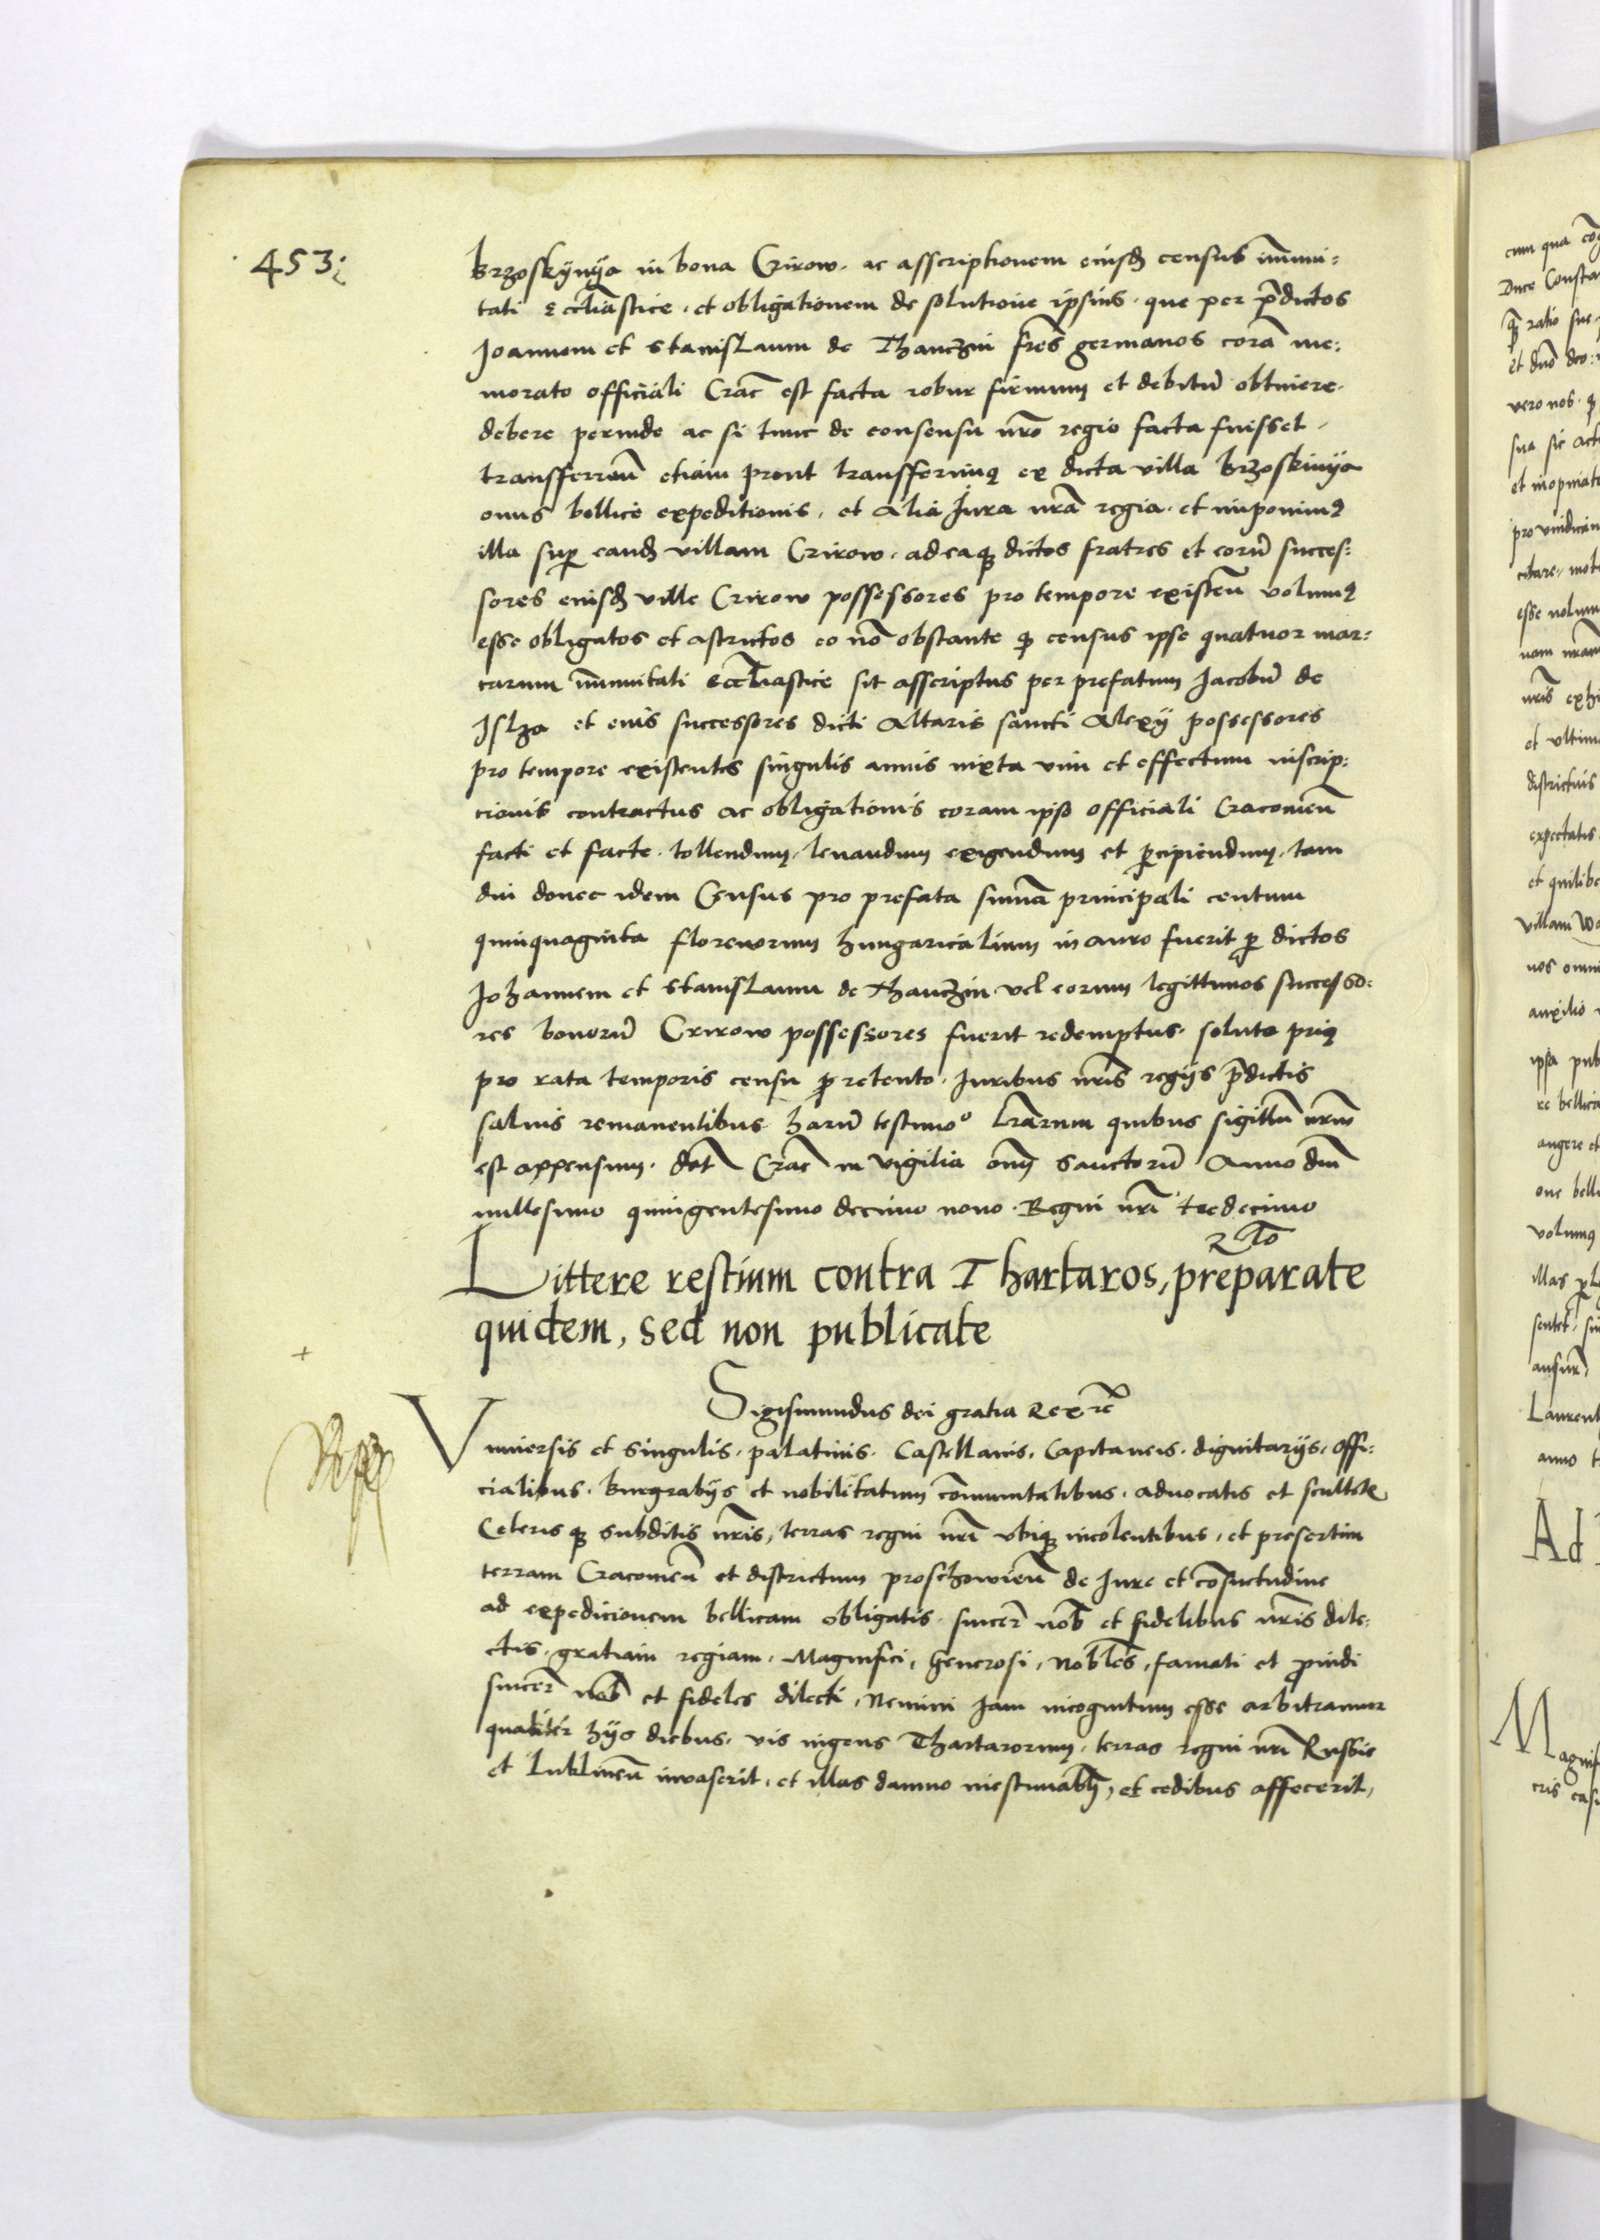 453
Brzoskÿnÿa in bona Czirow. ac asscriptionem eiusd censuS immuni:
tati Eccliastice. et obligationem de solutione ipsius. que per pdictos
Joannem et StanisLaum de Thanczin fres germanos cora me:
morato officiali Crac est facta robur firmum et debitu obtinere.
debere perinde ac si tunc de consensu nro regio facta fuisset.
transferrend etiam prout transferrimus ex dicta villa Brzoskinya
onus bellice expeditionis. et Alia Jura nra regia. et imponimus
illa sup eand villam Czirow. ad eaque dictos fratres et eoru succes:
sores eiusd ville Czirow possessores pro tempore existen volumus
esse obligatos et astrictos eo no obstante q census ipse quatuor mar:
carum immunitati Eccliastice sit asscriptus per prefatum Jacobu de
Jslza et eius successores dicti Altaris sancti Alexij possessores
pro tempore existentes singulis annis iuxta vim et effectum inscrip:
cionis contractus ac obligationis coram ipso officiali Cracovien
facti et facte. tollendum. levandum exigendum et pcipiendum. tam
diu donec idem Census pro prefata suma principali centum
quinquaginta florenorum hungaricalium in auro fuerit p dictos
Johannem et StanisLaum de Thanczin vel eorum legittimos successo:
res bonoru Czirow possessores fuerit redemptus. soluto prius
pro rata temporis censu p retento. Juribus nris regijs pdictis
salvis remanentibus haru testimo Lrarum quibus sigillu nrum
est appensum. dat Crac in vigilia omn Sanctoru Anno dni
millesimo quingentesimo decimo nono. Regni nri tredecimo
Rto
Littere restium contra Thartaros, preparate
quidem, sed non publicate
Sigismundus dei gratia Rex rc
Vniversis et Singulis. palatinis. Castellanis. Capitaneis. dignitarijs. offi:
cialibus. Burgrabijs et nobilitatum comunitatibus. advocatis et scultet
Ceteris que subditis nris, terras regni nri vbique incolentibus, et presertim
terram Cracovien et districtum proschovien de Jure et cosuetudine
ad expedicionem bellicam obligatis. sincer nob et fidelibus nris dile:
ctis. gratiam regiam. Magnifici, Generosi, Nobles, famati et pvidi
sincer nob et fideles dilecti, Nemini Jam incognitum esse arbitramur
qualiter hijs diebus. vis ingens Thartarorum. terras regni nri Russie
et Lublinen invaserit. et illas damno inestimabli, et cedibus affecerit,